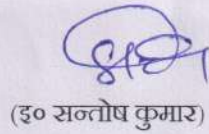 (इ० सन्तोष कुमार)